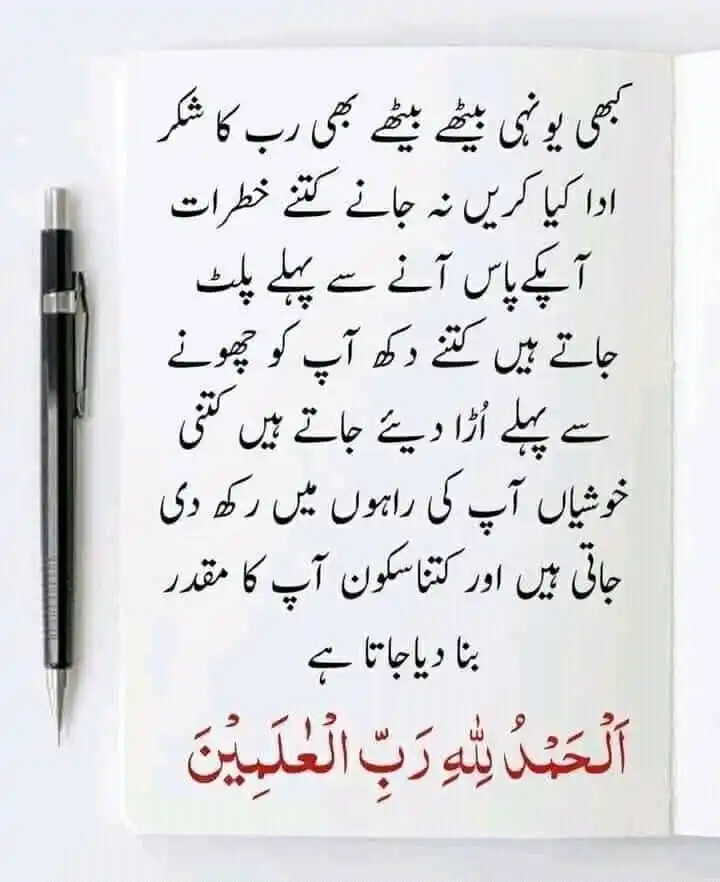 کبھی یونہی بیٹھے بیٹھے بھی رب کا شکر
ادا کیا کریں نہ جانے کتنے خطرات
آپکے پاس آنے سے پہلے پلٹ
جاتے ہیں کتنے دکھ آپ کو چھونے
سے پہلے اُڑا دیئے جاتے ہیں کتنی
خوشیاں آپ کی راہوں میں رکھ دی
جاتی ہیں اور کتنا سکون آپ کا مقدر
بنا دیا جاتا ہے
اَلْحَمْدُ لِلّٰهِ رَبِّ الْعٰلَمِیْنَ